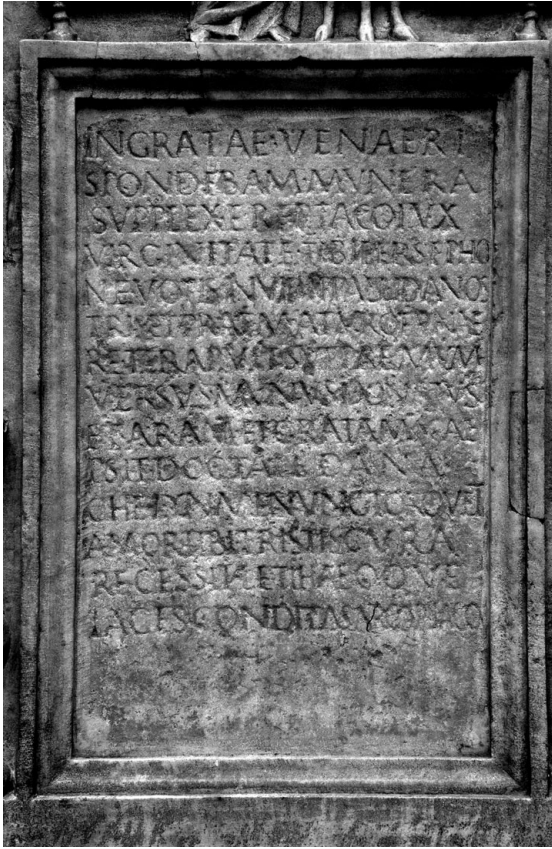 INGRATAE·VENAERI
SPONDEBAM·MVNERA
SVPPLEX·EREPTA COIVX
VIRGINITATE·TIBI PERSEPHO
NE VOTIS INVIDIT PALLIDA NOS
TRIS ET PRAEMATVRO FVNE
RE TE RAPVIT SVPRAEMVM
VERSVS MVNVS
ET ARAM ET GRATAM SCAL
PSIT DOCTA PEDANA
CHELYN ME NVNC TORQVET
AMOR TIBI TRISTIS CVRA
RECESSIT LETHAEOQVE
IACES CONDITA SARCOPHAGO